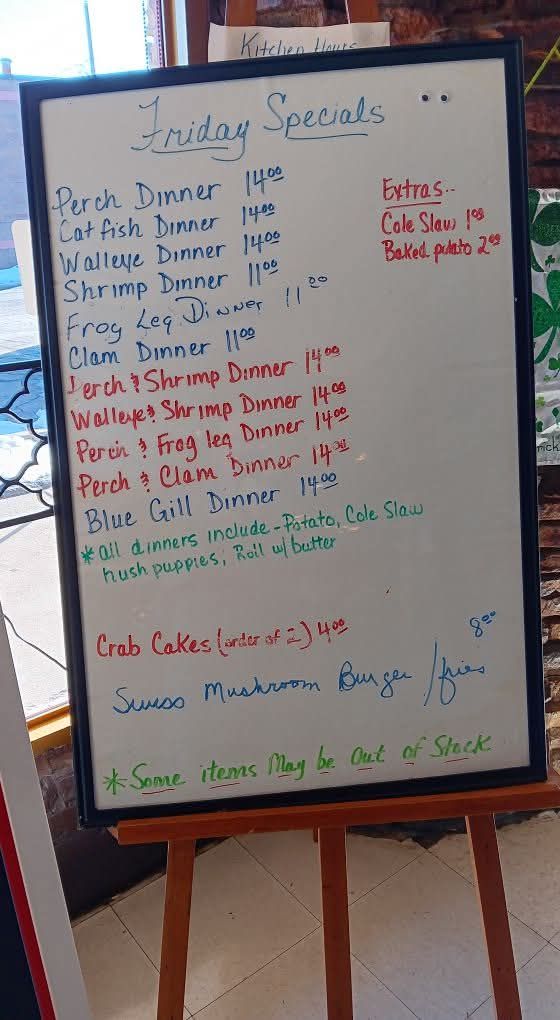 Kitchen Hours
Friday Specials
Perch Dinner 14⁰⁰
Catfish Dinner 14⁰⁰
Walleye Dinner 14⁰⁰
Shrimp Dinner 11⁰⁰
Frog Leg Dinner 11⁰⁰
Clam Dinner 11⁰⁰
Perch & Shrimp Dinner 14⁰⁰
Walleye & Shrimp Dinner 14⁰⁰
Perch & Frog leg Dinner 14⁰⁰
Perch & Clam Dinner 14⁰⁰
Blue Gill Dinner 14⁰⁰
*all dinners include - Potato, Cole Slaw
hush puppies, Roll w/butter
Extras..
Cole Slaw 1⁰⁰
Baked potato 2⁰⁰
Crab Cakes (order of 2) 4⁰⁰
Swiss Mushroom Burger /fries 8⁰⁰
*Some items May be Out of Stock